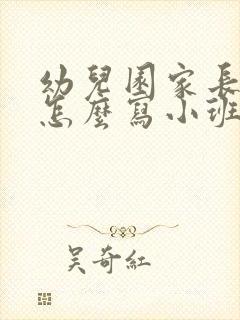 幼兒園家長
怎麼寫小班
吳奇紅